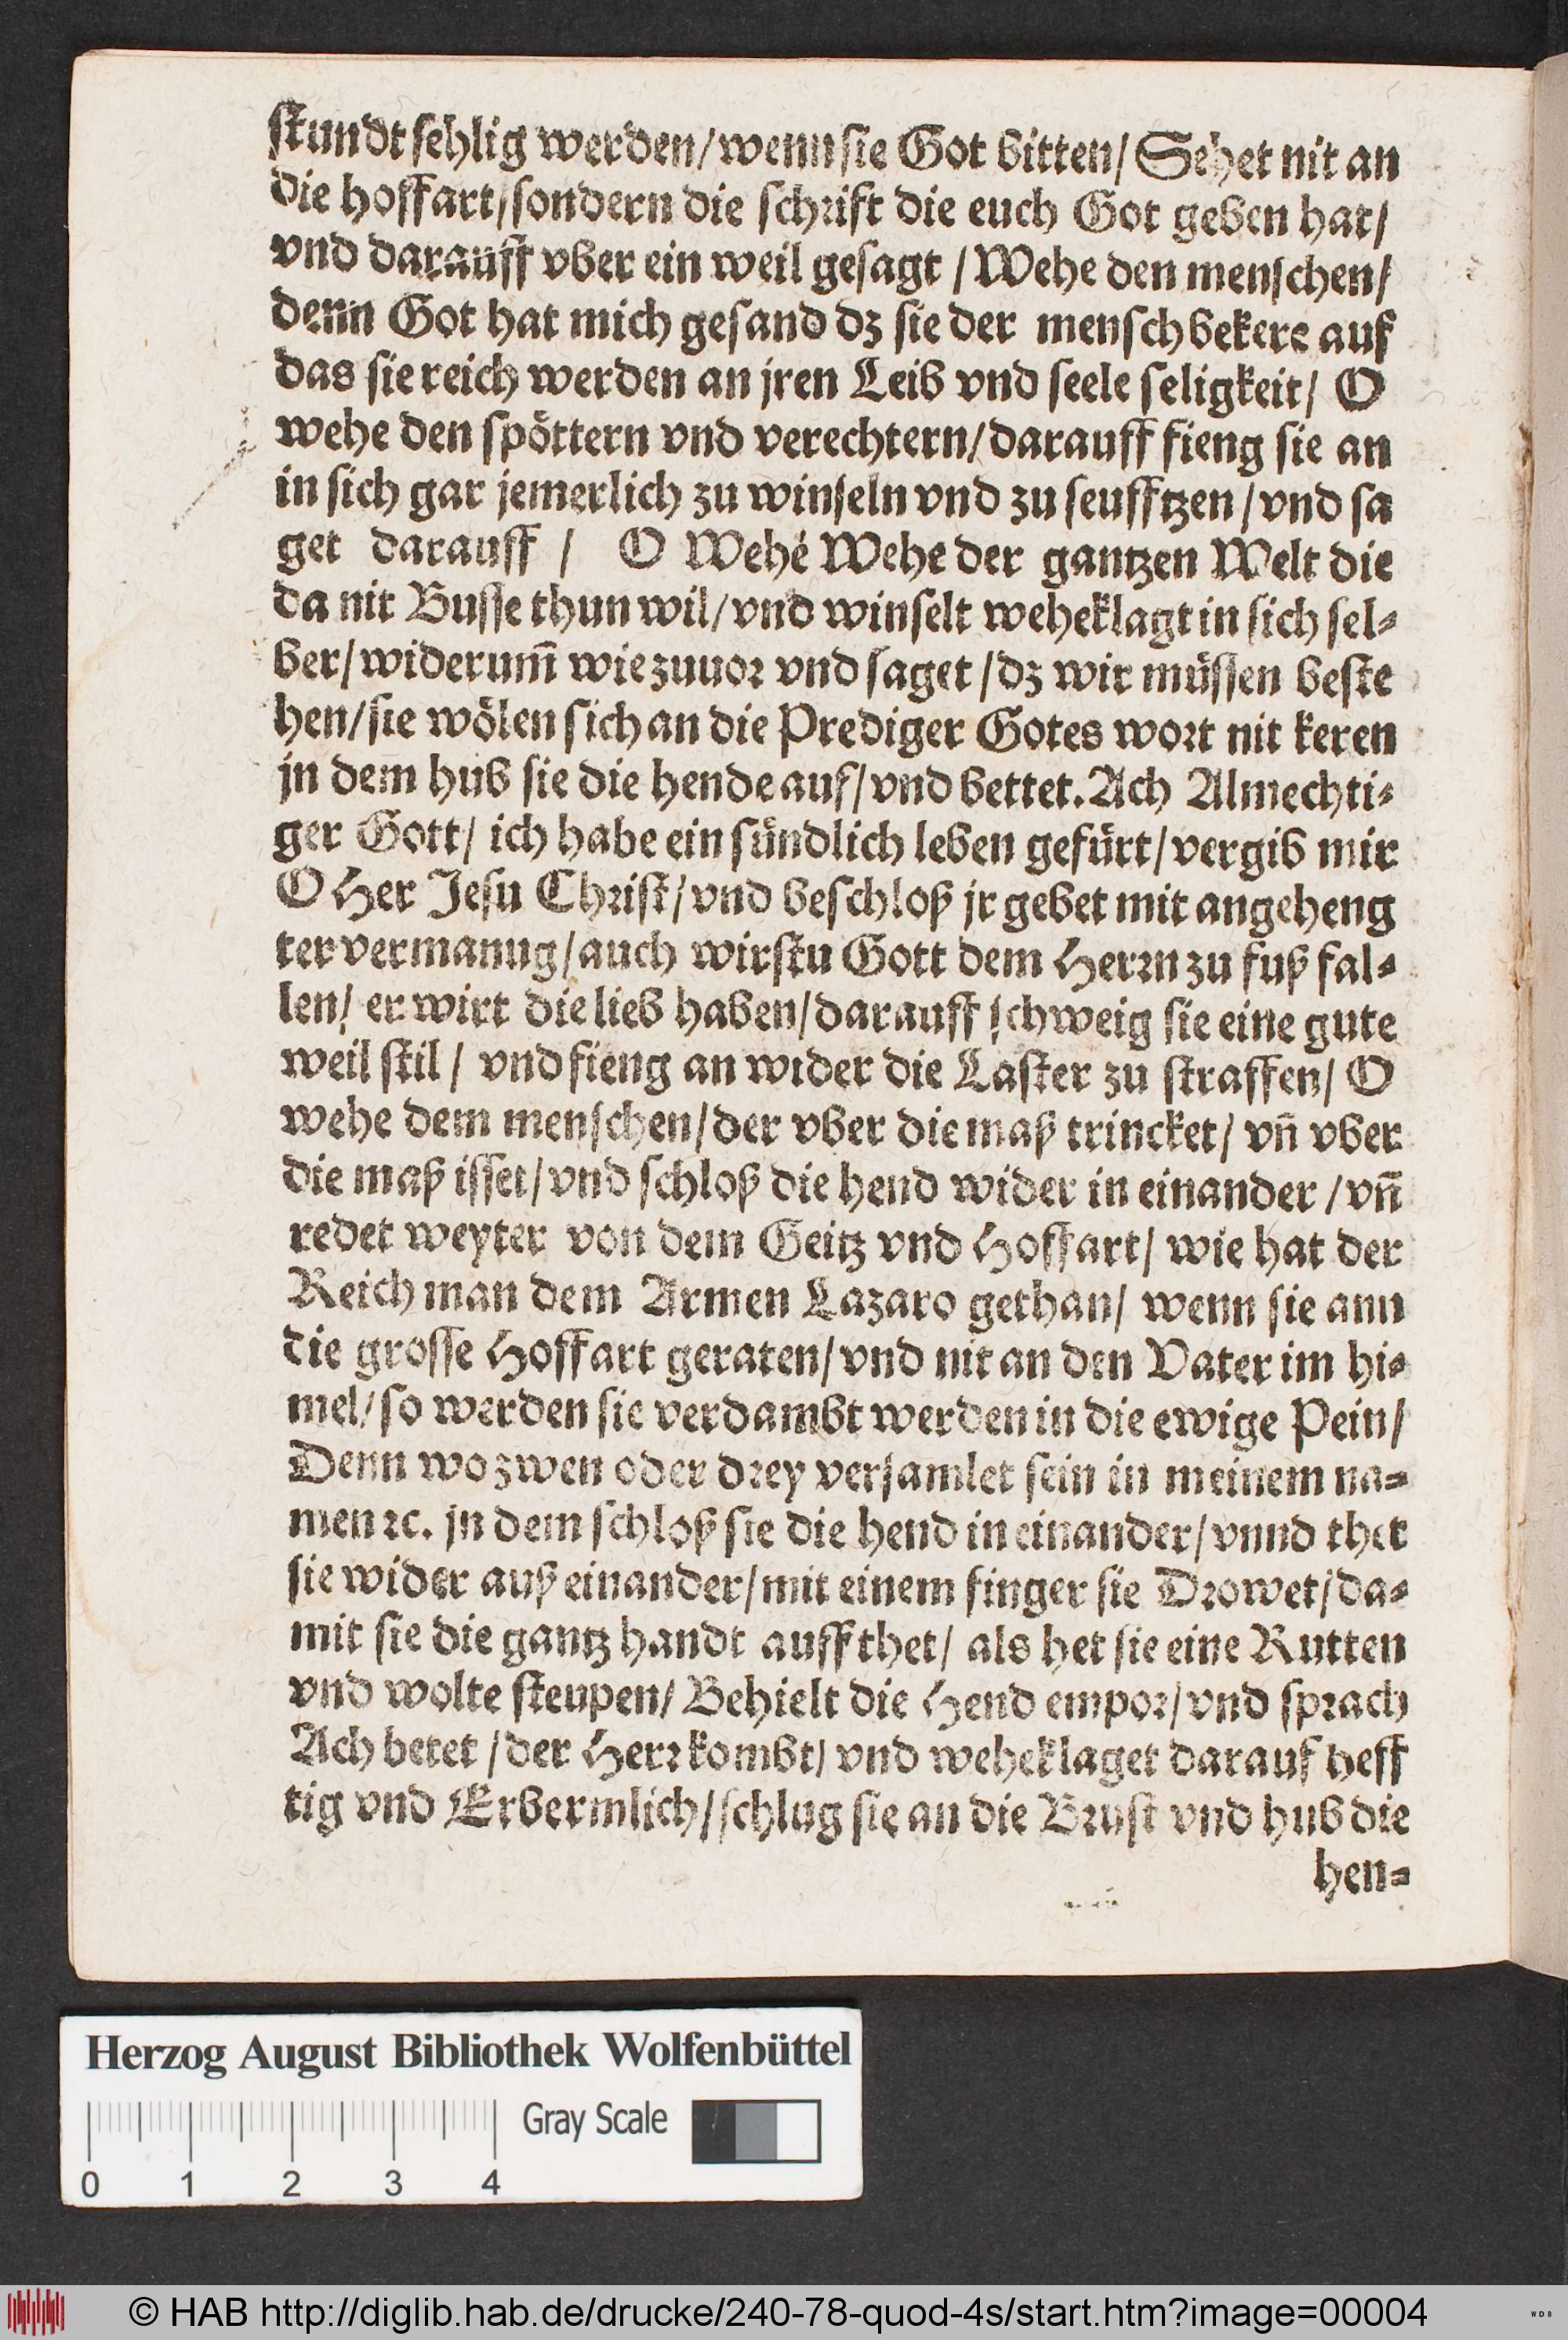 stundt sehlig werden/ wenn sie Got bitten/ Sehet nit an
die hoffart/ sondern die schrift die euch Got geben hat/
vnd darauff vber ein weil gesagt / Wehe den menschen/
denn Got hat mich gesand dz sie der mensch bekere auf
das sie reich werden an jren Leib vnd seele seligkeit/ O
wehe den spöttern vnd verechtern/ darauff fieng sie an
in sich gar jemerlich zu winseln vnd zu seufftzen / vnd sa
get darauff / O Wehe Wehe der gantzen Welt die
da nit Busse thun wil/ vnd winselt weheklagt in sich sel-
ber/ widerum̃ wie zuuor vnd saget / dz wir müssen beste
hen/ sie wölen sich an die Prediger Gotes wort nit keren
jn dem hub sie die hende auf/ vnd bettet. Ach Almechti-
ger Gott/ ich habe ein sündlich leben gefürt/ vergib mir
O Her Jesu Christ/ vnd beschloß jr gebet mit angeheng
ter vermanug/ auch wirstu Gott dem Herrn zu fuß fal-
len/ er wirt die lieb haben/ darauff schweig sie eine gute
weil stil / vnd fieng an wider die Laster zu straffen/ O
wehe dem menschen/ der vber die maß trincket/ vñ vber
die maß isset/ vnd schloß die hend wider in einander / vñ
redet weyter von dem Geitz vnd Hoffart/ wie hat der
Reich man dem Armen Lazaro gethan/ wenn sie ann
die grosse Hoffart geraten/ vnd nit an den Vater im hi-
mel/ so werden sie verdambt werden in die ewige Pein/
Denn wo zwen oder drey versamlet sein in meinem na-
men ꝛc. jn dem schloß sie die hend in einander/ vnnd thet
sie wider auß einander/ mit einem finger sie Drowet/ da-
mit sie die gantz handt auff thet/ als het sie eine Rutten
vnd wolte steupen/ Behielt die Hend empor/ vnd sprach
Ach betet / der Herr kombt/ vnd weheklaget darauf heff
tig vnd Erbermlich/ schlug sie an die Brust vnd hub die
hen-
Herzog August Bibliothek Wolfenbüttel
Gray Scale
0 1 2 3 4
© HAB http://diglib.hab.de/drucke/240-78-quod-4s/start.htm?image=00004